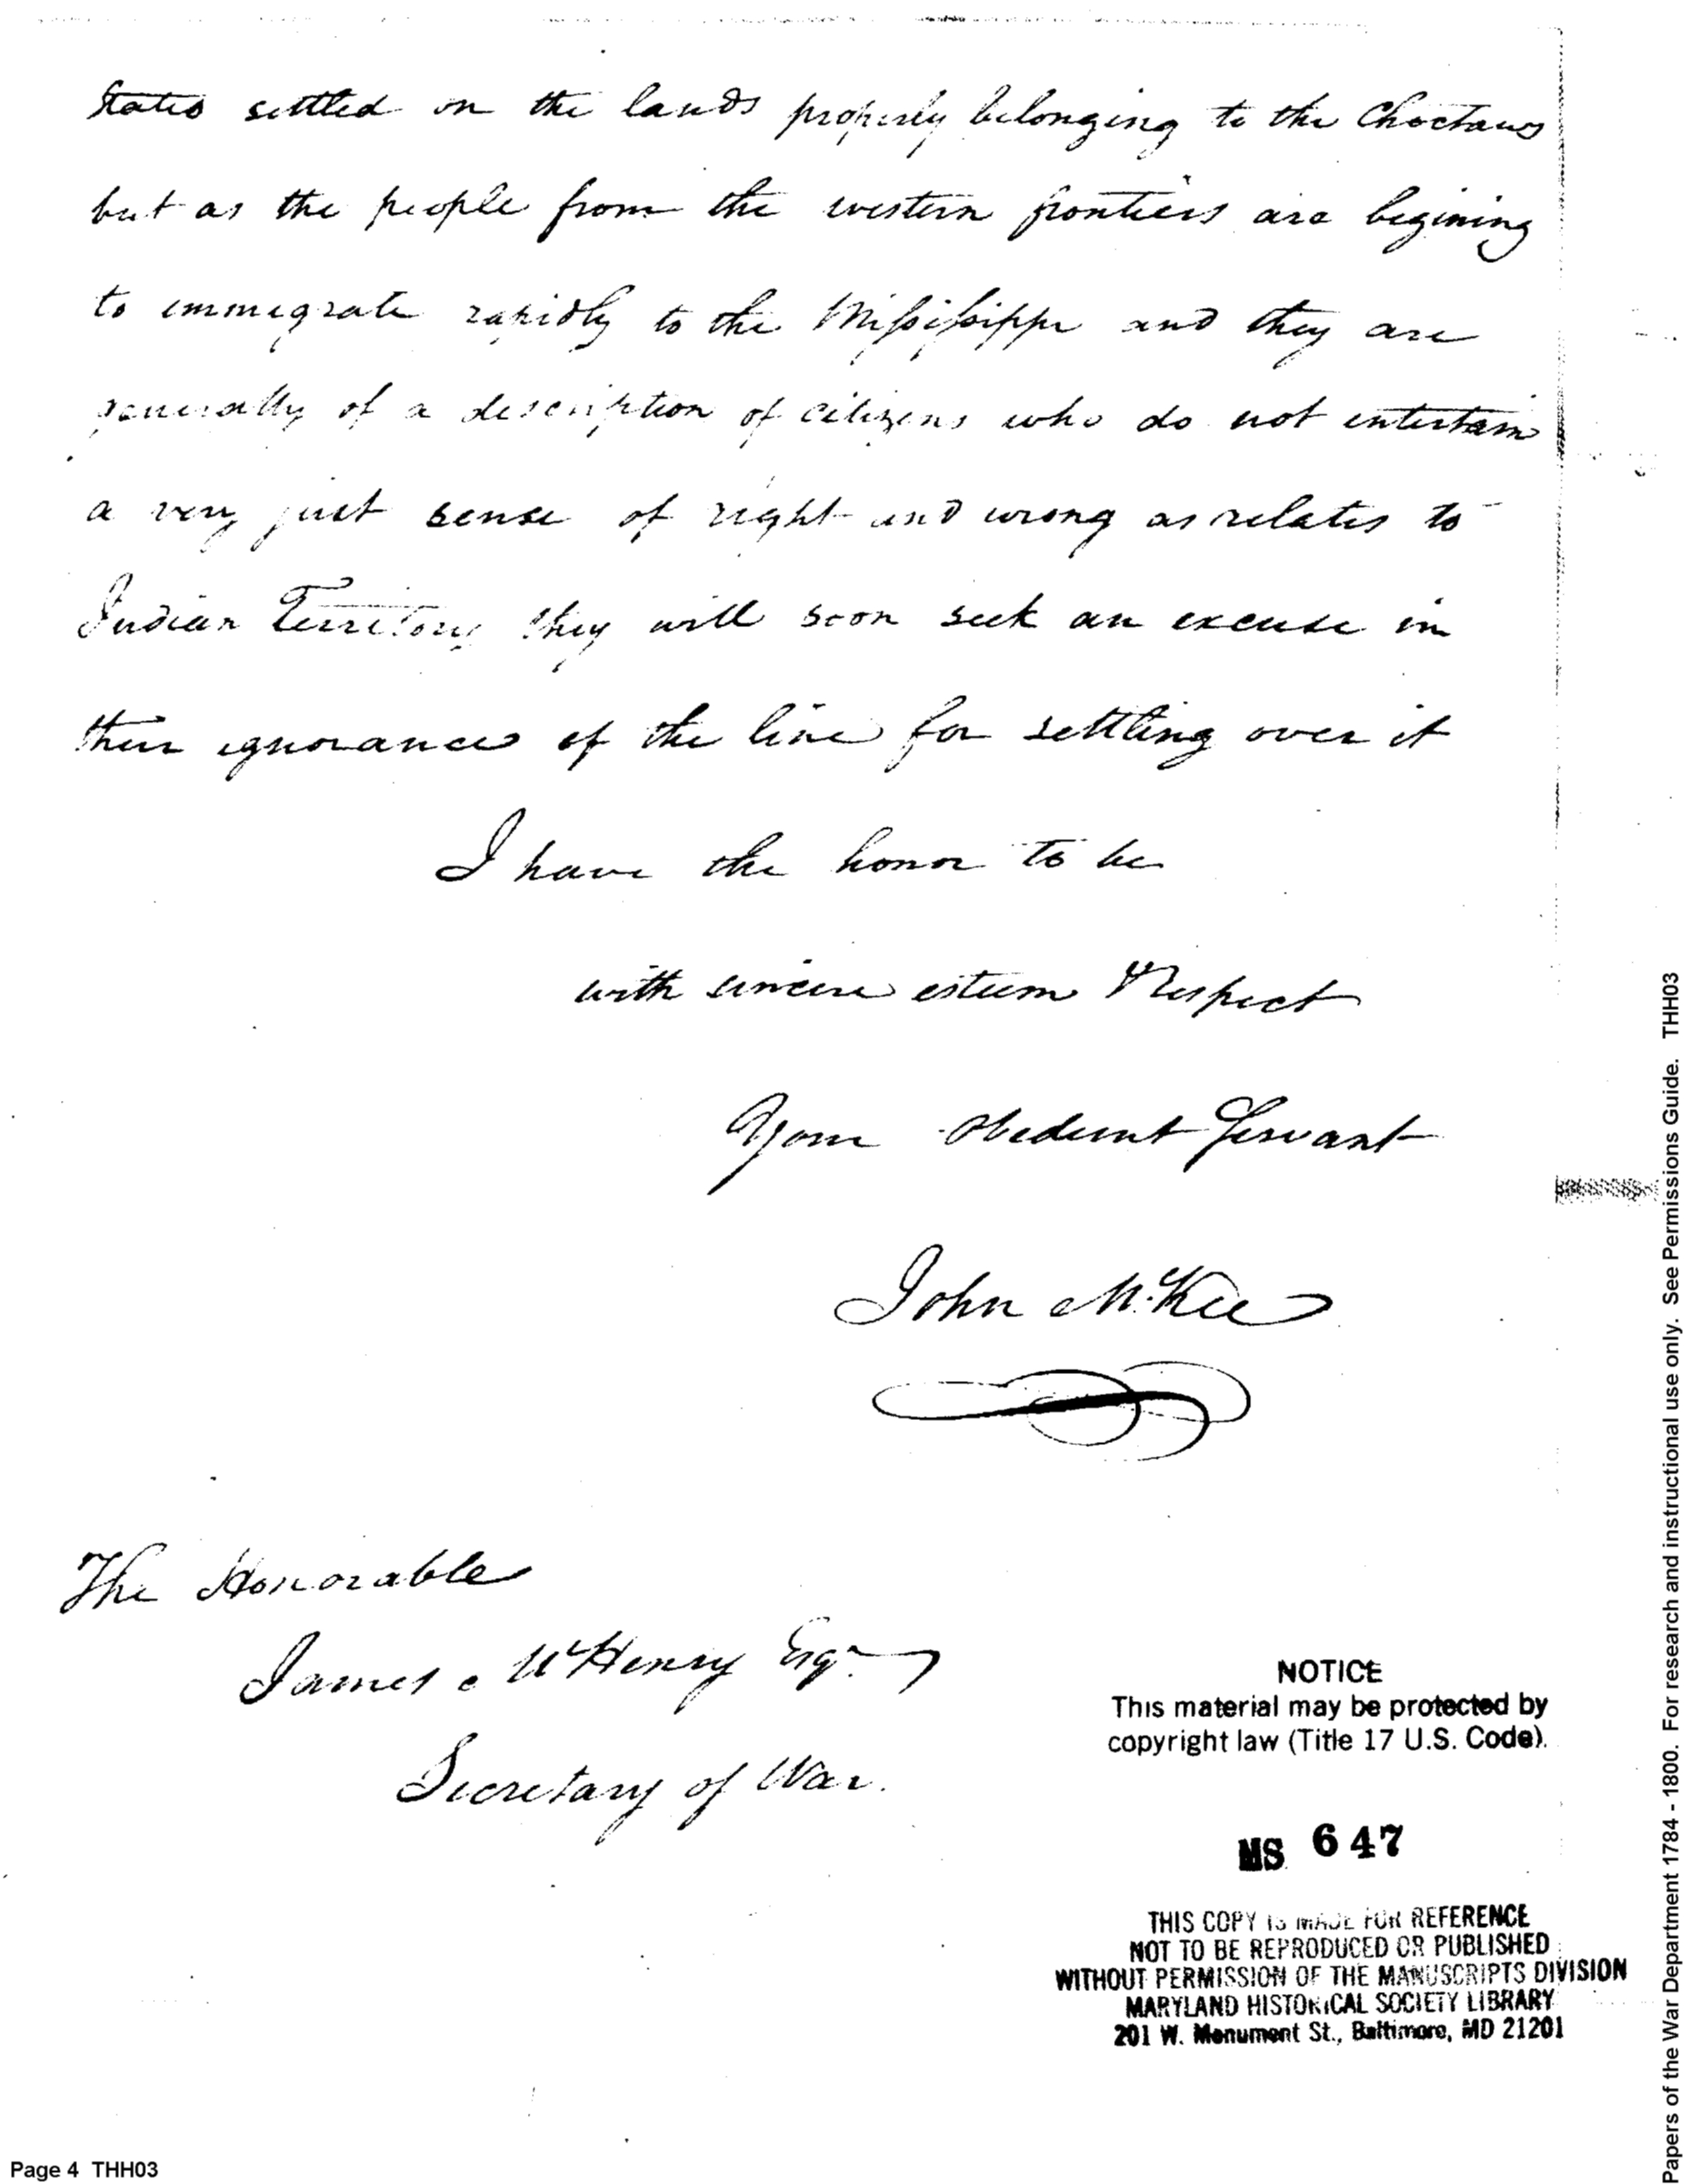 States settled on the lands properly belonging to the Choctaws
but as the people from the western frontiers are begining
to immegrate rapidly to the Mississippi and they are
generally of a description of citizens who do not entertain
a very just sense of right and wrong as relates to
Indian Territory they will soon seek an excuse in
their ignorance of the line for settling over it
I have the honor to be
with sincere esteem & Respect
Your obedient Servant
John McKee
The Honorable
James McHenry Esqr.
Secretary of War.
NOTICE
This material may be protected by
copyright law (Title 17 U.S. Code).
MS 647
THIS COPY IS MADE FOR REFERENCE
NOT TO BE REPRODUCED OR PUBLISHED
WITHOUT PERMISSION OF THE MANUSCRIPTS DIVISION
MARYLAND HISTORICAL SOCIETY LIBRARY
201 W. Monument St., Baltimore, MD 21201
Page 4 THH03
Papers of the War Department 1784 - 1800. For research and instructional use only. See Permissions Guide. THH03